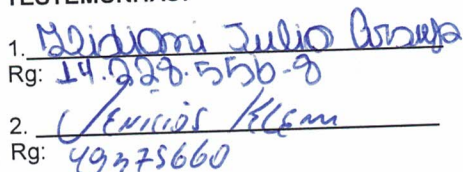 TESTEMUNHAS:
1. Julio Araujo
Rg: 14.228.556-8
2. Venicios Klem
Rg: 49375660